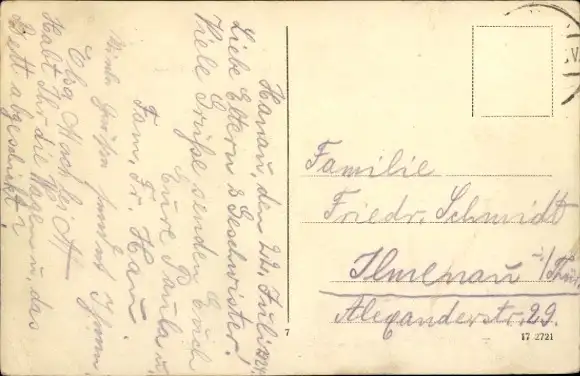 Hanau, den 22. Juli 1924.
Liebe Eltern & Geschwister!
Viele Grüße senden Euch
Eure Paula u.
Fam. Fr. Hau
Viele Grüße sendet
Elsa
Habt Ihr die Wagen u. das
Bett abgeschickt?
Familie
Friedr. Schmidt
Ilmenau i/Thür.
Alexanderstr. 29.
7
17 2721